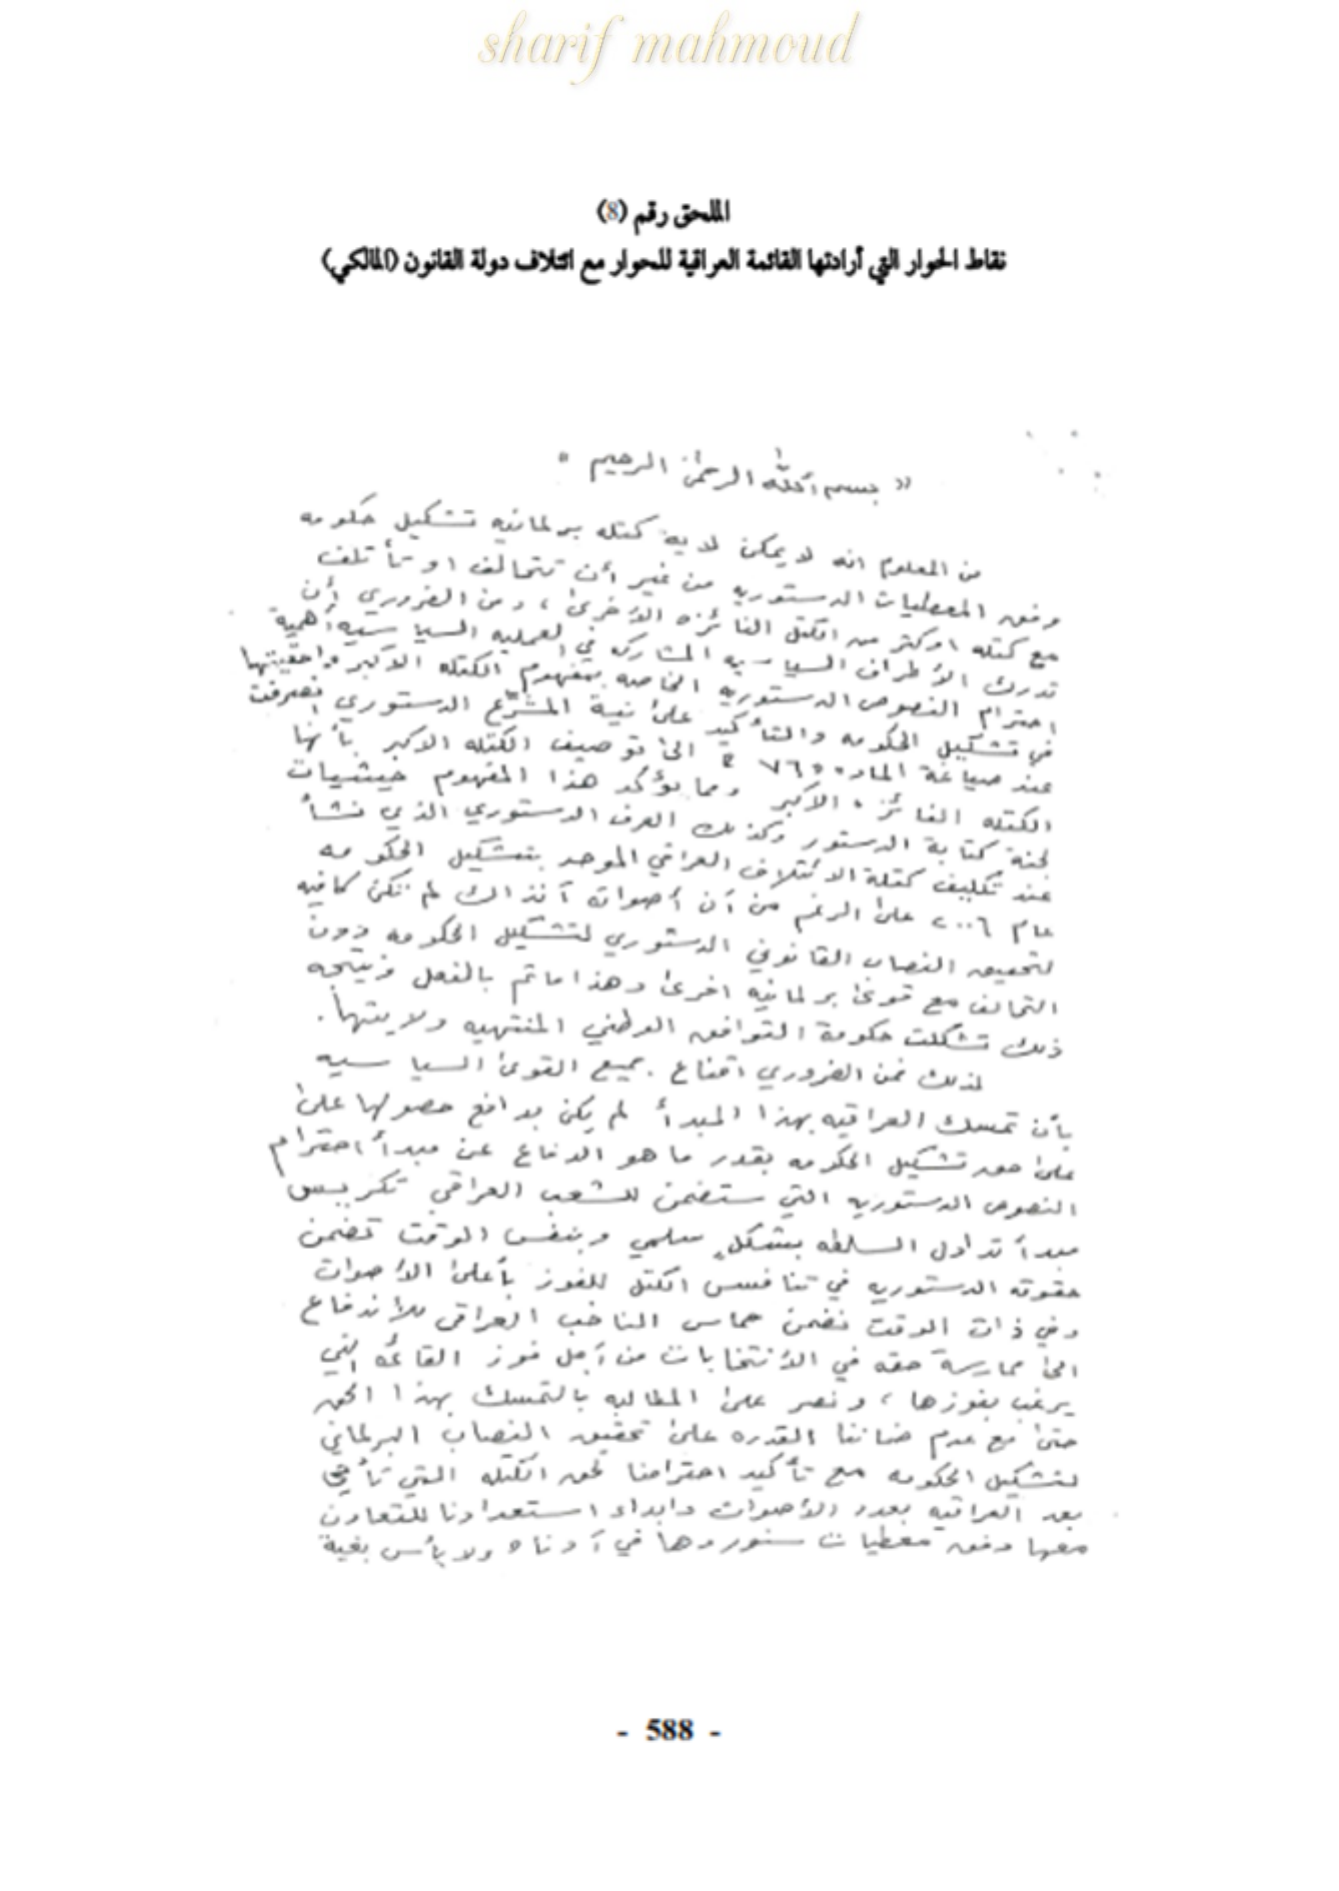 sharif mahmoud
الملحق رقم (8)
نقاط الحوار التي أرادتها القائمة العراقية للحوار مع ائتلاف دولة القانون (المالكي)
« بسم الله الرحمن الرحيم »
من المعلوم انه لا يمكن لاية كتله برلمانيه تشكيل حكومه
وفق المعطيات الدستوريه من غير أن تتحالف او تأتلف
مع كتله او كثر من الكتل الفائزه الأخرى ، ومن الضروري أن
تدرك الأطراف السياسيه المشاركه في العمليه السياسيه أهمية
احترام النصوص الدستوريه الخاصه بمفهوم الكتله الأكبر واحقيتها
في تشكيل الحكومه والتأكيد على نية المشرّع الدستوري انصرفت
عند صياغة الماده ٧٦ الى توصيف الكتله الاكبر بأنها
الكتله الفائزه الاكبر ومما يؤكد هذا المفهوم حيثيات
لجنة كتابة الدستور وكذلك العرف الدستوري الذي نشأ
عند تكليف كتلة الائتلاف العراقي الموحد بتشكيل الحكومه
عام ٢٠٠٦ على الرغم من أن أصواته آنذاك لم تكن كافيه
لتحقيق النصاب القانوني الدستوري لتشكيل الحكومه دون
التحالف مع قوى برلمانيه اخرى وهذا ماتم بالفعل ونتيجه
ذلك تشكلت حكومة التوافق الوطني المنتهيه ولايتها.
لذلك فمن الضروري اقناع جميع القوى السياسيه
بأن تمسك العراقيه بهذا المبدأ لم يكن بدافع حصولها على
على حق تشكيل الحكومه بقدر ما هو الدفاع عن مبدأ احترام
النصوص الدستوريه التي ستضمن للشعب العراقي تكريس
مبدأ تداول السلطه بشكل سلمي وبنفس الوقت تضمن
حقوقه الدستوريه في تنافس الكتل للفوز بأعلى الأصوات
وفي ذات الوقت نضمن حماس الناخب العراقي للاندفاع
الى ممارسة حقه في الأنتخابات من أجل فوز القائمه التي
يرغب بفوزها ، ونصر على المطالبه بالتمسك بهذا الحق
حتى مع عدم ضماننا القدره على تحقيق النصاب البرلماني
لتشكيل الحكومه مع تأكيد احترامنا لحق الكتله التي تأتي
بعد العراقيه بعدد الأصوات وابداء استعدادنا للتعاون
معها وفق معطيات سنوردها في أدناه ولا بأس بغية
- 588 -